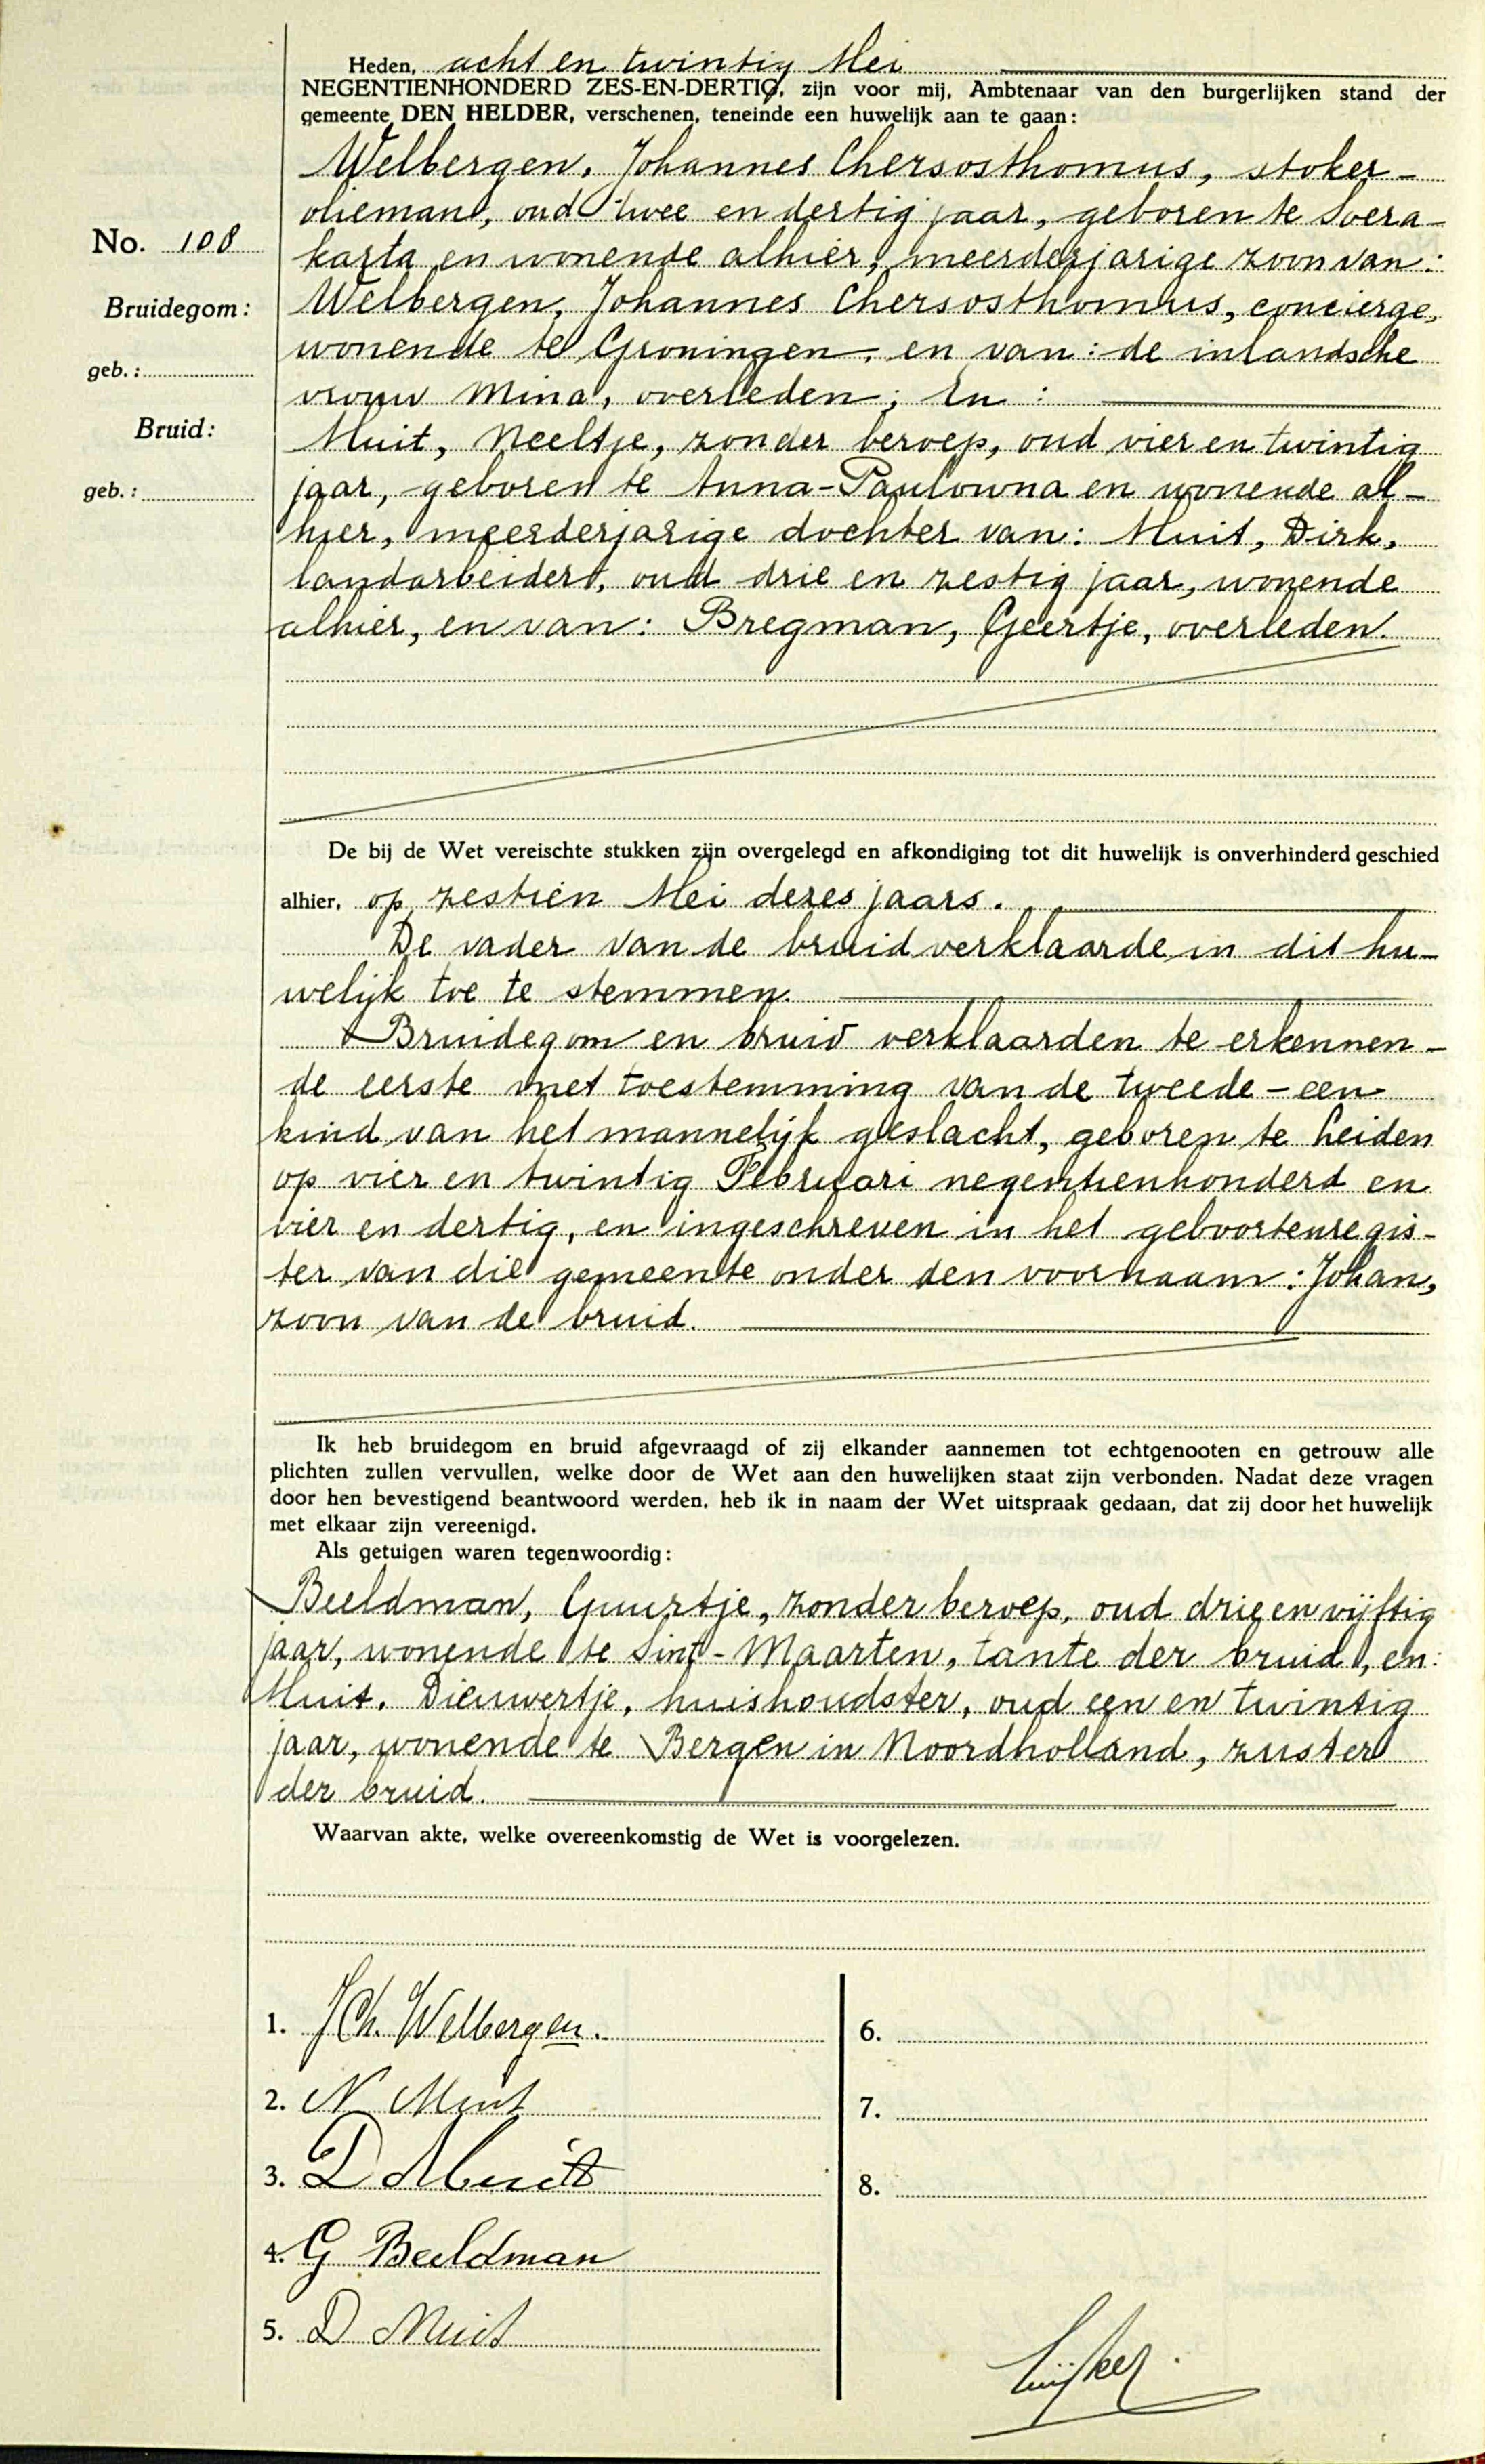 Heden, acht en twintig Mei
NEGENTIENHONDERD ZES-EN-DERTIG, zijn voor mij, Ambtenaar van den burgerlijken stand der
gemeente DEN HELDER, verschenen, teneinde een huwelijk aan te gaan:
Welbergen, Johannes Chersosthomus, stoker-
olieman, oud twee en dertig jaar, geboren te Soera-
karta en wonende alhier, meerderjarige zoon van:
Welbergen, Johannes Chersosthomus, concierge,
wonende te Groningen, en van: de inlandsche
vrouw Mina, overleden; En:
Muit, Neeltje, zonder beroep, oud vier en twintig
jaar, geboren te Anna-Paulowna en wonende al-
hier, meerderjarige dochter van: Muit, Dirk,
landarbeider, oud drie en zestig jaar, wonende
alhier, en van: Bregman, Geertje, overleden.
No. 108
Bruidegom:
geb.:
Bruid:
geb.:
De bij de Wet vereischte stukken zijn overgelegd en afkondiging tot dit huwelijk is onverhinderd geschied
alhier, op zestien Mei dezes jaars.
De vader van de bruid verklaarde in dit hu-
welijk toe te stemmen.
Bruidegom en bruid verklaarden te erkennen -
de eerste met toestemming van de tweede - een
kind van het mannelijk geslacht, geboren te Leiden
op vier en twintig Februari negentienhonderd en
vier en dertig, en ingeschreven in het geboortenregis-
ter van die gemeente onder den voornaam: Johan,
zoon van de bruid.
Ik heb bruidegom en bruid afgevraagd of zij elkander aannemen tot echtgenooten en getrouw alle
plichten zullen vervullen, welke door de Wet aan den huwelijken staat zijn verbonden. Nadat deze vragen
door hen bevestigend beantwoord werden, heb ik in naam der Wet uitspraak gedaan, dat zij door het huwelijk
met elkaar zijn vereenigd.
Als getuigen waren tegenwoordig:
Beeldman, Guurtje, zonder beroep, oud drie en vijftig
jaar, wonende te Sint-Maarten, tante der bruid, en:
Muit, Dieuwertje, huishoudster, oud een en twintig
jaar, wonende te Bergen in Noordholland, zuster
der bruid.
Waarvan akte, welke overeenkomstig de Wet is voorgelezen.
1. J Ch. Welbergen.
2. N Muit
3. D Muit
4. G Beeldman
5. D Muit
6.
7.
8.